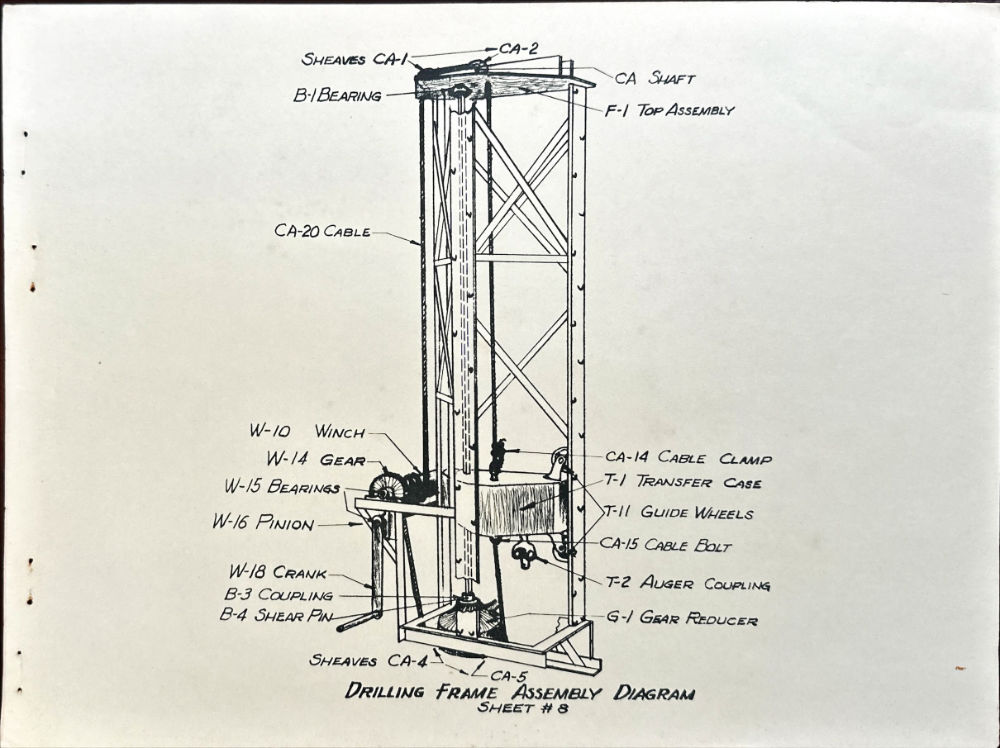 SHEAVES CA-1
CA-2
CA SHAFT
B-1 BEARING
F-1 TOP ASSEMBLY
CA-20 CABLE
W-10 WINCH
W-14 GEAR
CA-14 CABLE CLAMP
W-15 BEARINGS
T-1 TRANSFER CASE
W-16 PINION
T-11 GUIDE WHEELS
CA-15 CABLE BOLT
W-18 CRANK
T-2 AUGER COUPLING
B-3 COUPLING
B-4 SHEAR PIN
G-1 GEAR REDUCER
SHEAVES CA-4
CA-5
DRILLING FRAME ASSEMBLY DIAGRAM
SHEET # 8